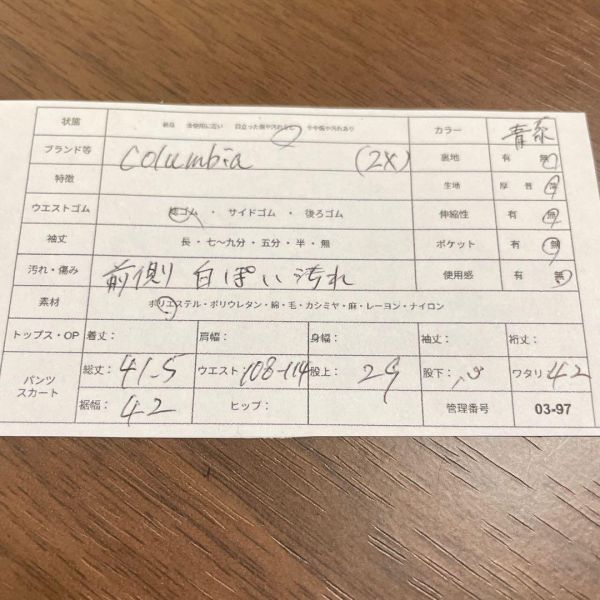 状態 新品 未使用に近い 目立った傷や汚れなし やや傷や汚れあり カラー 青系
ブランド等 Columbia (2X) 裏地 有 無
特徴 生地 厚 普 薄
ウエストゴム 総ゴム ・ サイドゴム ・ 後ろゴム 伸縮性 有 無
袖丈 長・七〜九分・五分・半・無 ポケット 有 無
汚れ・傷み 前側 白ぽい汚れ 使用感 有 無
素材 ポリエステル・ポリウレタン・綿・毛・カシミヤ・麻・レーヨン・ナイロン
トップス・OP 着丈: 肩幅: 身幅: 袖丈: 裄丈:
パンツ スカート 総丈: 41.5 ウエスト: 108-114 股上: 29 股下: ワタリ: 42
裾幅: 42 ヒップ: 管理番号 03-97